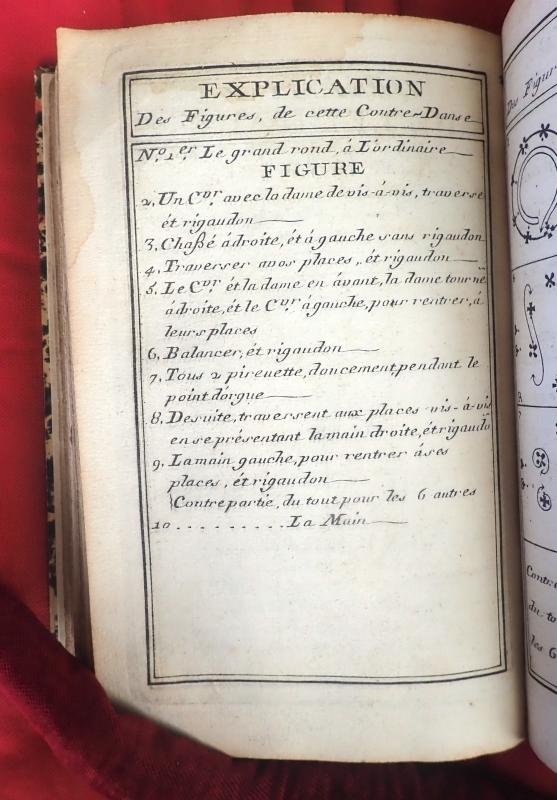 EXPLICATION
Des Figures, de cette Contre-Danse
No. 1.er Le grand rond, á L'ordinaire
FIGURE
2, Un Cvr. avec la dame de vis-á-vis, traverse
ét rigaudon
3, Chaßé ádroite, ét á gauche sans rigaudon
4, Traverser a vos places, ét rigaudon
5, Le Cvr ét la dame en ávant, la dame tourne
ádroite, ét le Cvr. ágauche, pour rentrer, á
leurs places
6, Balancer, ét rigaudon
7, Tous 2 pirouette, doucement, pendant le
point d'orgue
8, De suite, traversent aux places vis-á-vis
en se présentant la main droite, ét rigaudo
9, La main gauche, pour rentrer áses
places, ét rigaudon
Contre partie, du tout pour les 6 autres
10 . . . . . . . . . . La Main
Des Figur
Contre
du to
les 6